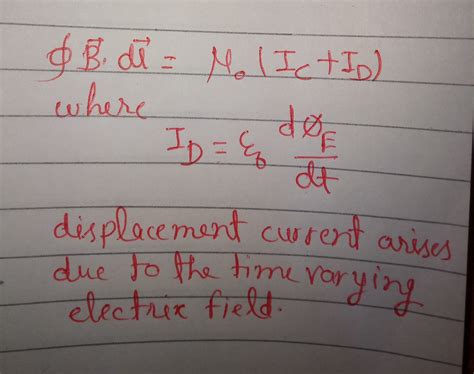 ∮ B⃗. dl⃗ = μ₀ (I_C + I_D)
where
I_D = ε₀ dØ_E/dt
displacement current arises
due to the time varying
electrix field.